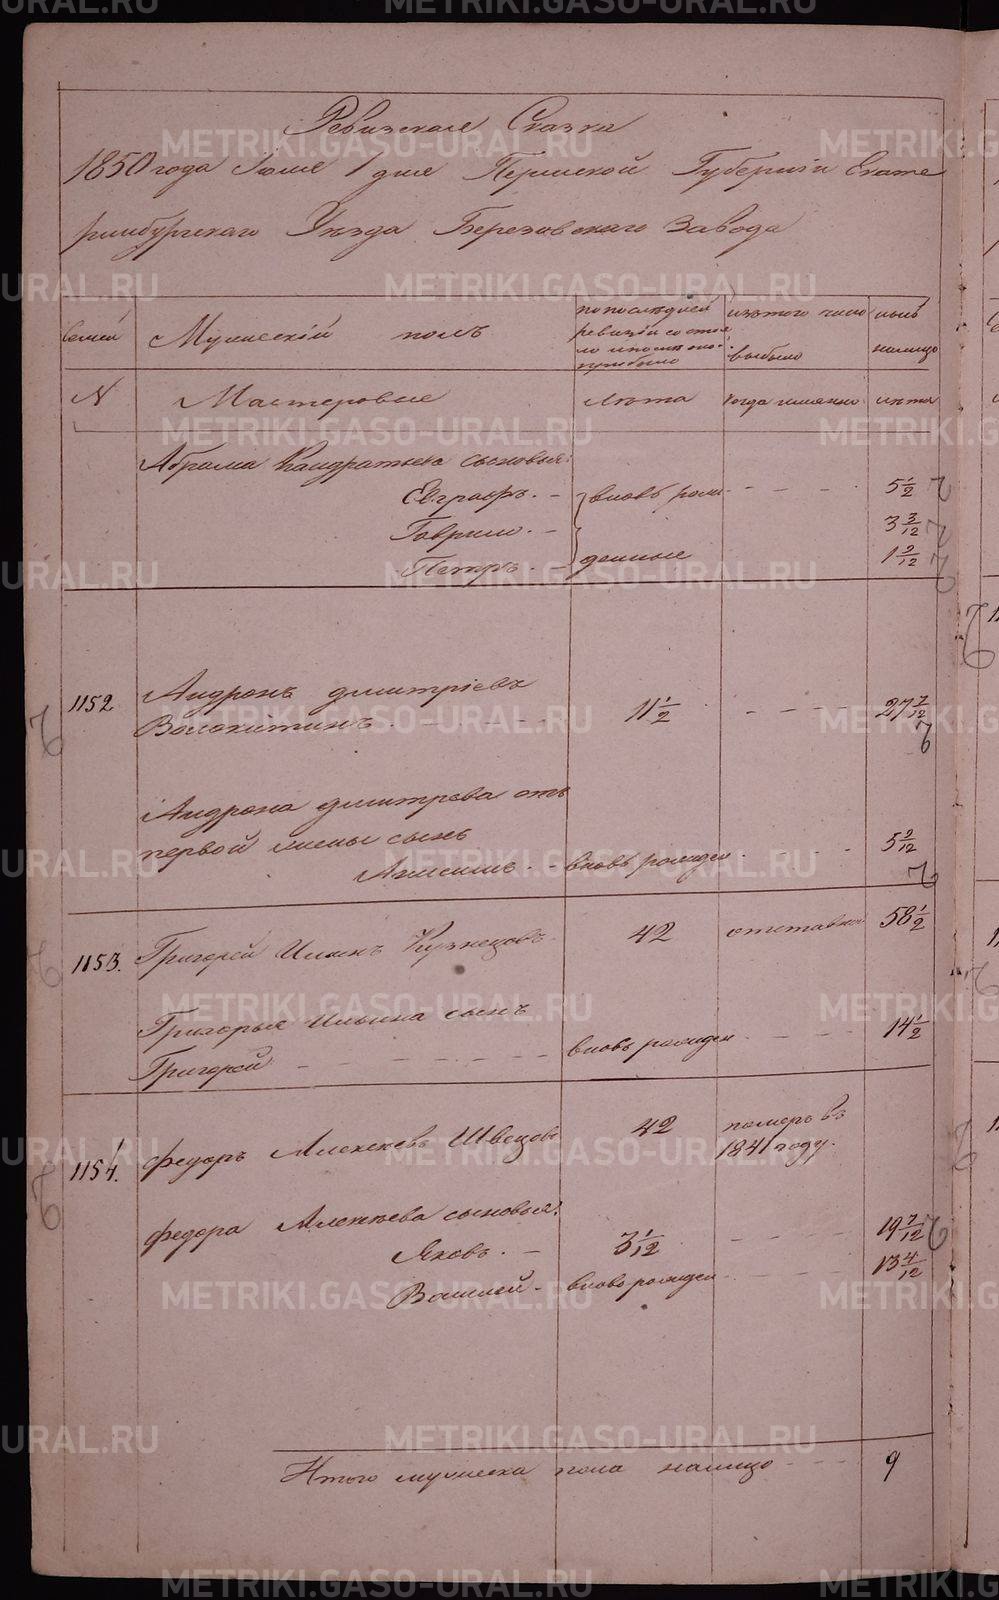 Ревизская Сказка
1850 года Июля 1 дня Пермской Губерніи Екате
ринбургскаго Уѣзда Березовскаго Завода
семей
Мужескій полъ
по последней ревизіи состоя
ло и после оной прибыло
изъ того числа выбыло
ныне налицо
N Мастеровые Лѣта когда именно лѣта
Абрама Кандратьева сыновья:
Евграфъ. - вновь рож - - - 5 1/2
Гаврило. - 3 3/12
Петръ. - денные 1 9/12
1152. Андронъ Дмитріевъ
Волокитинъ - - - 11 1/2 - - - - 27 7/12
Андрона Дмитрева отъ
первой жены сынъ
вновь рожден - - - 5 9/12
1153. Григорей Ильинъ Кузнецовъ. 42 отставной 58 1/2
Григорья Ильина сынъ
Григорей - - - - - - вновь рожден - - - 14 1/2
1154. Федоръ Алексеевъ Швецовъ 42 померъ въ
1841 году.
Федора Алексѣева сыновья:
Яковъ. - 3 1/12 - - - - 19 7/12
Василей - вновь рожден - - - - 13 4/12
Итого мужеска пола налицо - - - 9
METRIKI.GASO-URAL.RU